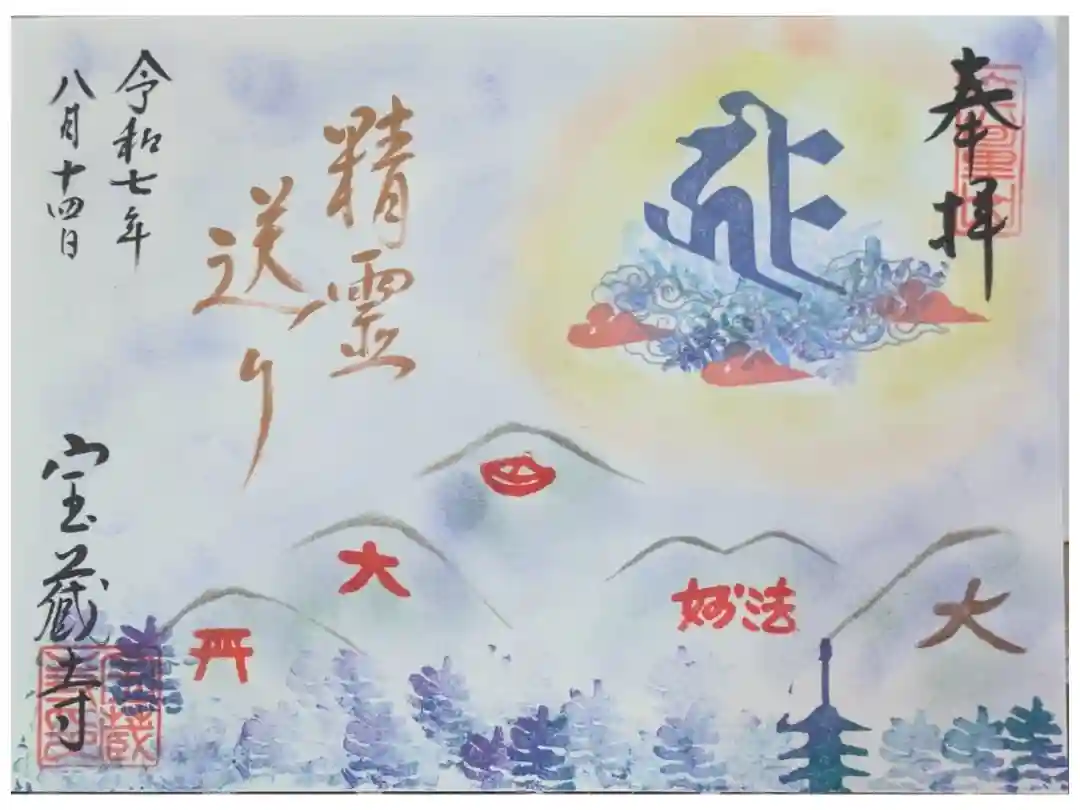 奉拝
精霊
送り
大
妙法
大
令和七年
八月十四日
宝蔵寺